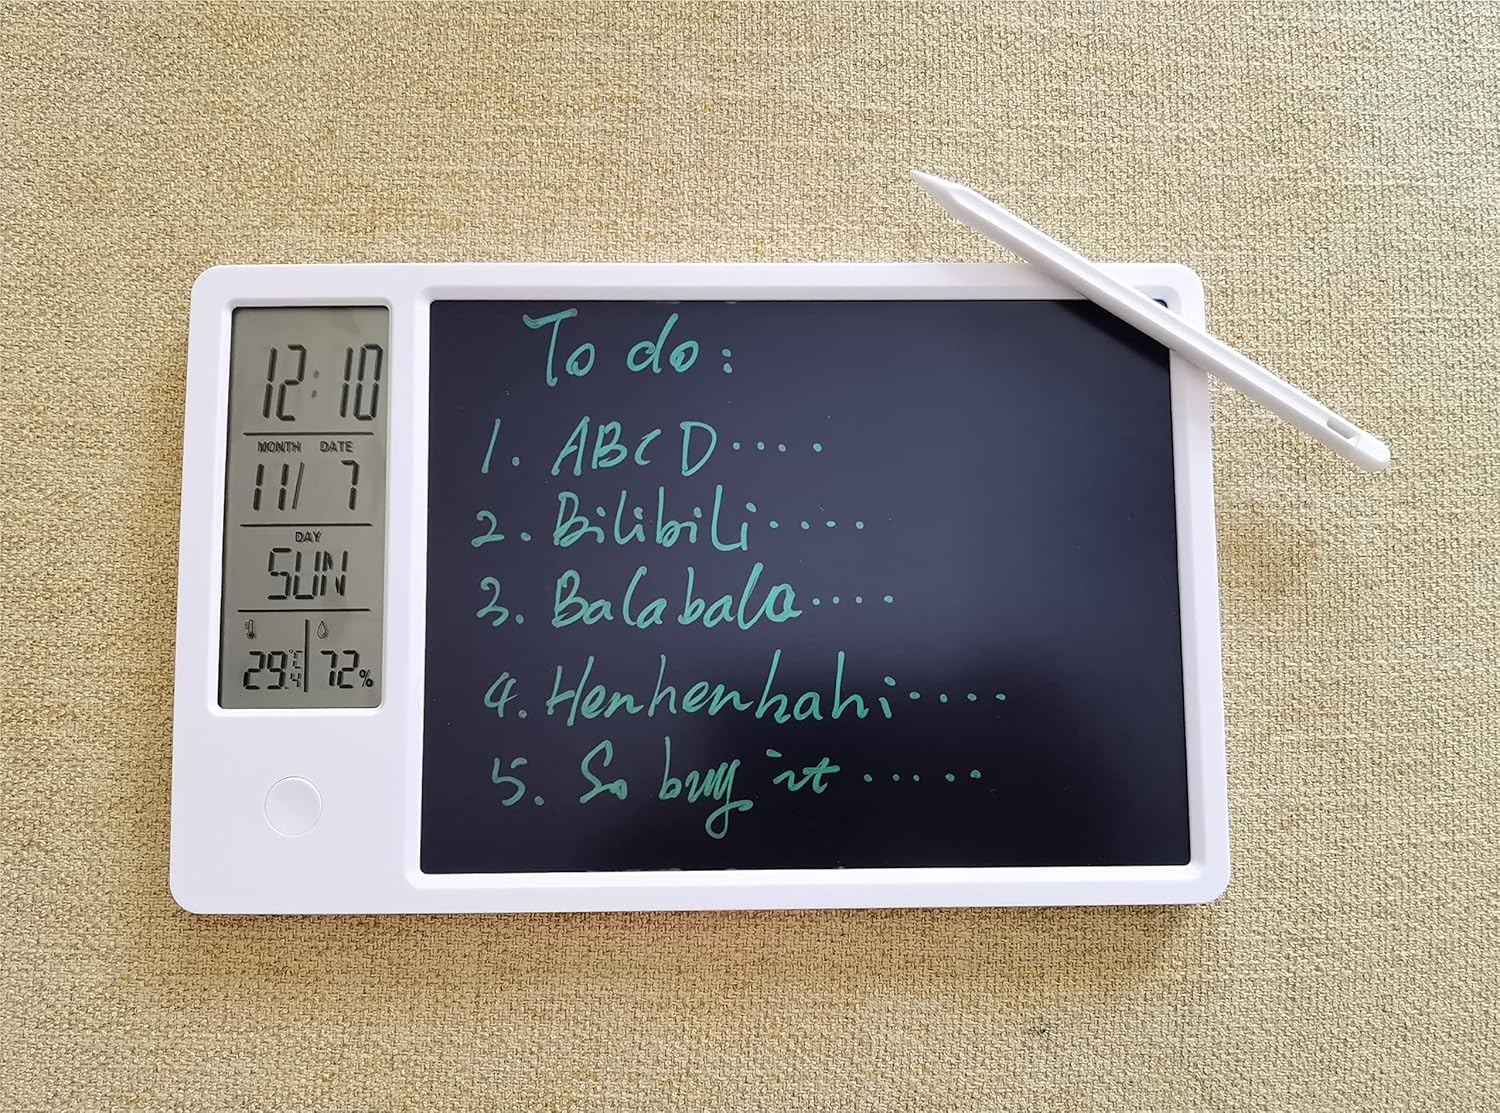 12:10
MONTH DATE
11/ 7
DAY
SUN
29.4°C 72%
To do:
1. ABCD....
2. Bilibili....
3. Balabala....
4. Henhenhahi....
5. So buy it.....